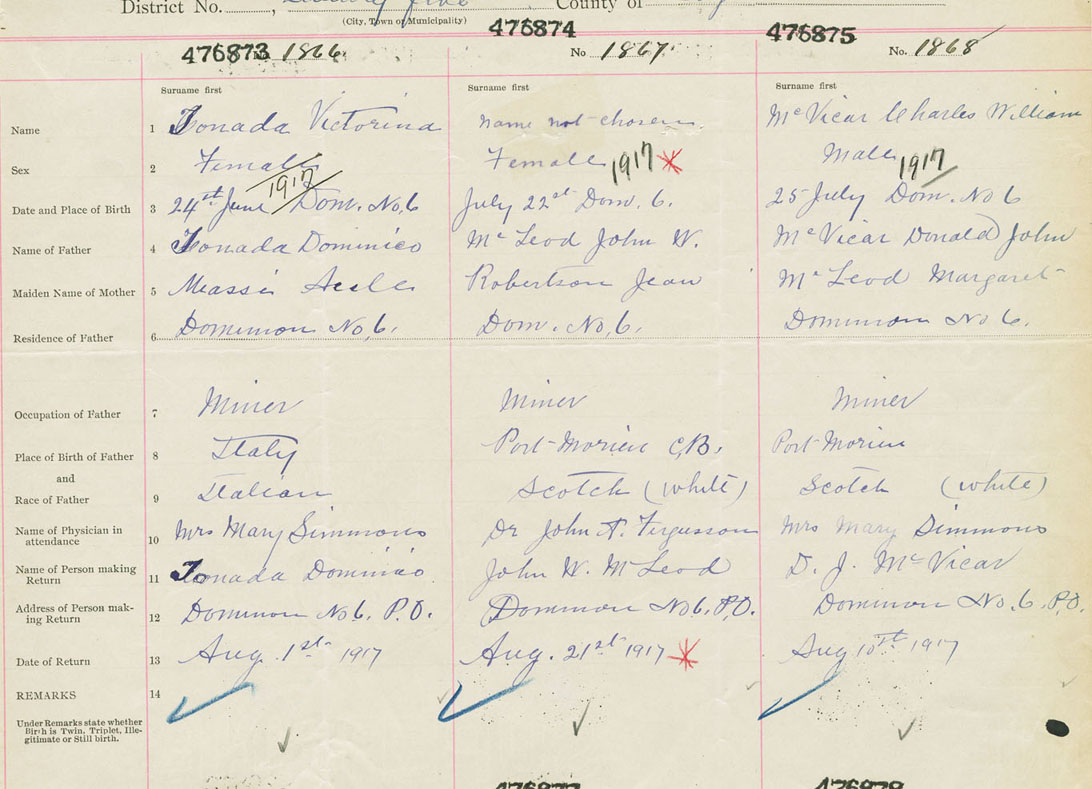 District No. , County of
(City, Town or Municipality)
476873 No 1866 476874 No 1867 476875 No. 1868
Surname first Surname first Surname first
Name 1 Tonada Victorina name not chosen McVicar Charles William
Sex 2 Female Female 1917 Male 1917
1917
Date and Place of Birth 3 24st June Dom. No. 6 July 22st Dom. 6. 25 July Dom. No 6
Name of Father 4 Tonada Dominico McLeod John W. McVicar Donald John
Maiden Name of Mother 5 Robertson Jean McLeod Margaret
Residence of Father 6 Dominion No 6. Dom. No, 6. Dominion No 6.
Occupation of Father 7 Miner Miner Miner
Place of Birth of Father 8 Italy Port Morien C.B. Port Morien
and
Race of Father 9 Italian Scotch (white) Scotch (white)
Name of Physician in attendance 10 Mrs Mary Simmons Dr John A. Fergusson Mrs Mary Simmons
Name of Person making Return 11 Tonada Dominico John W. McLeod D. J. McVicar
Address of Person making Return 12 Dominion No 6. P.O. Dominion No 6. P.O. Dominion No. 6 P.O.
Date of Return 13 Aug. 1st 1917 Aug. 21st 1917 Aug 10th 1917
REMARKS 14
Under Remarks state whether
Birth is Twin, Triplet, Ille-
gitimate or Still birth.